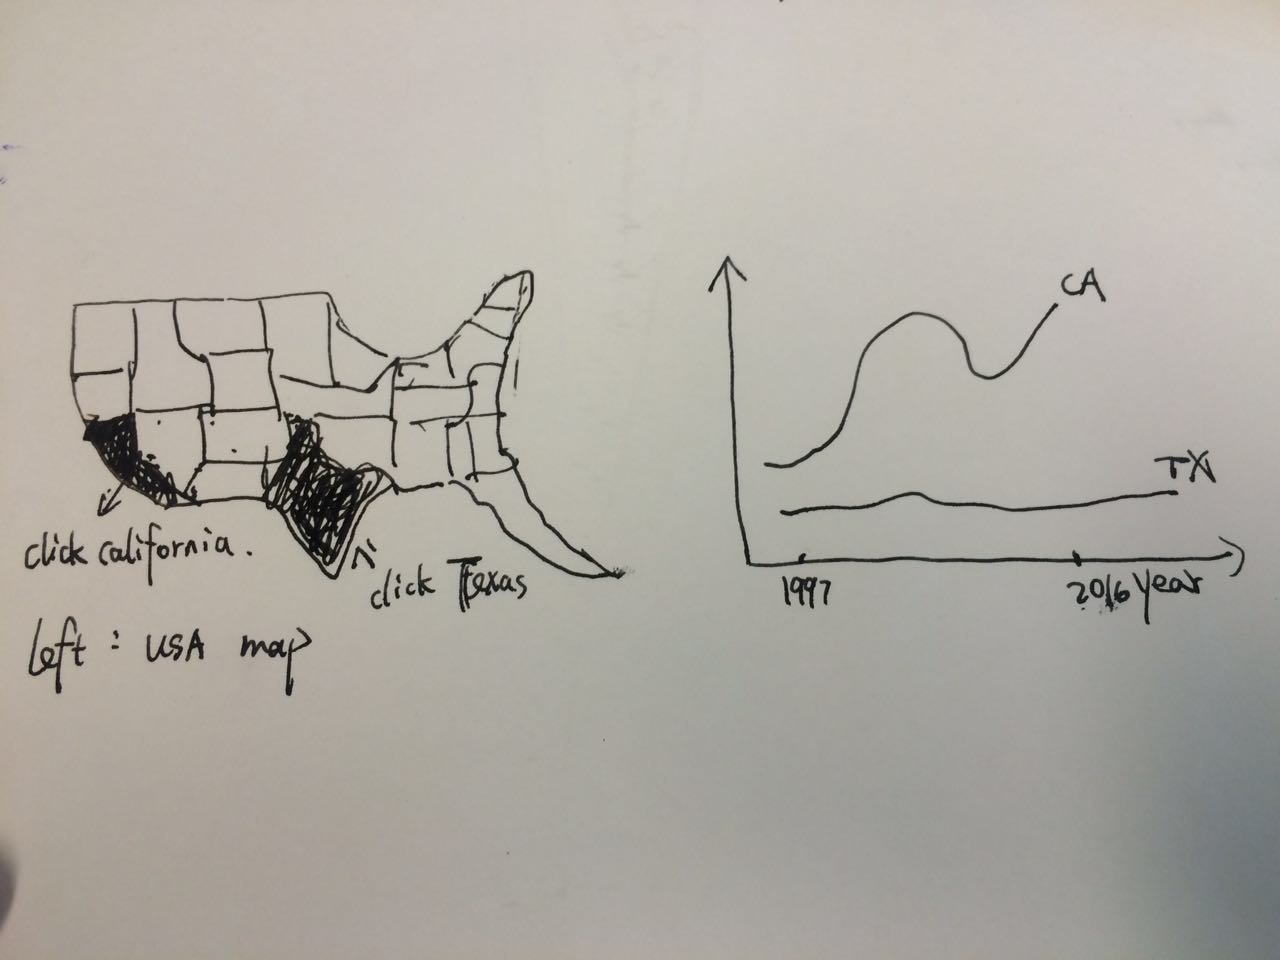 click california.
click Texas
left : USA map
CA
TX
1997
2016 year